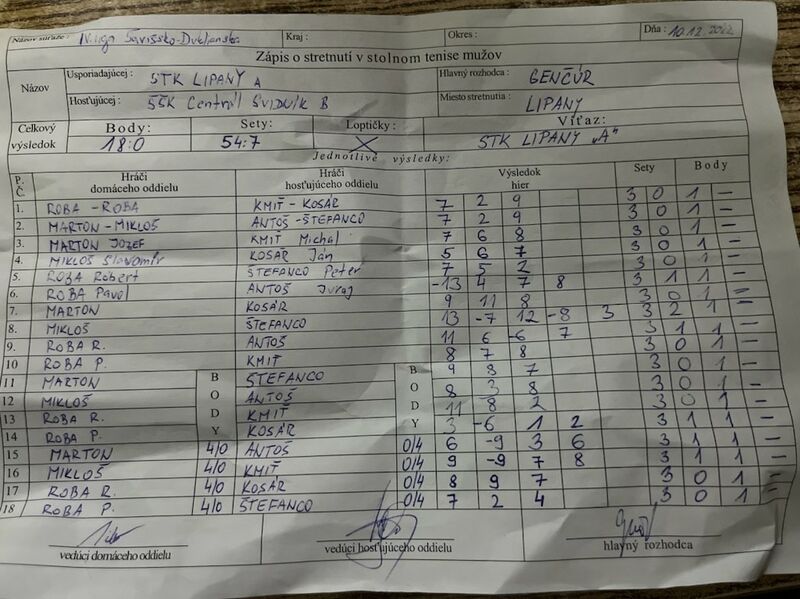 Názov súťaže : IV.liga Šarišsko-Duklianska Kraj : Okres : Dňa : 10.12.2022
Zápis o stretnutí v stolnom tenise mužov
Názov Usporiadajúcej : STK LIPANY A Hlavný rozhodca : GENČÚR
Hosťujúcej : ŠŠK Centrál SVIDNÍK B Miesto stretnutia : LIPANY
Celkový výsledok Body: Sety: Loptičky: Víťaz:
18:0 54:7 X STK LIPANY „A"
Jednotlivé výsledky:
P. Č. Hráči domáceho oddielu Hráči hosťujúceho oddielu Výsledok hier Sety Body
1. ROBA - ROBA KMIŤ - KOSÁR 7 2 9 3 0 1 –
2. MARTON - MIKLOŠ ANTOŠ - ŠTEFANCO 7 2 9 3 0 1 –
3. MARTON JOZEF KMIŤ Michal 7 6 8 3 0 1 –
4. MIKLOŠ Slavomír KOSÁR Ján 5 6 7 3 0 1 –
5. ROBA Róbert ŠTEFANCO Peter 7 5 2 3 0 1 –
6. ROBA Pavol ANTOŠ Juraj -13 4 7 8 3 1 1 –
7. MARTON KOSÁR 9 11 8 3 0 1 –
8. MIKLOŠ ŠTEFANCO 13 -7 12 -8 3 3 2 1 –
9. ROBA R. ANTOŠ 11 6 -6 7 3 1 1 –
10 ROBA P. KMIŤ 8 7 8 3 0 1 –
11 MARTON B ŠTEFANCO B 9 3 7 3 0 1
12 MIKLOŠ O ANTOŠ O 8 3 8 3 0 1 –
13 ROBA R. D KMIŤ D 11 8 2 3 0 1 –
14 ROBA P. Y KOSÁR Y 3 -6 1 2 3 1 1 –
15 MARTON 4/0 ANTOŠ 0/4 6 -9 3 6 3 1 1 –
16 MIKLOŠ 4/0 KMIŤ 0/4 9 -9 7 8 3 1 1 –
17 ROBA R. 4/0 KOSÁR 0/4 8 9 7 3 0 1 –
18 ROBA P. 4/0 ŠTEFANCO 0/4 7 2 4 3 0 1 –
vedúci domáceho oddielu vedúci hosťujúceho oddielu hlavný rozhodca